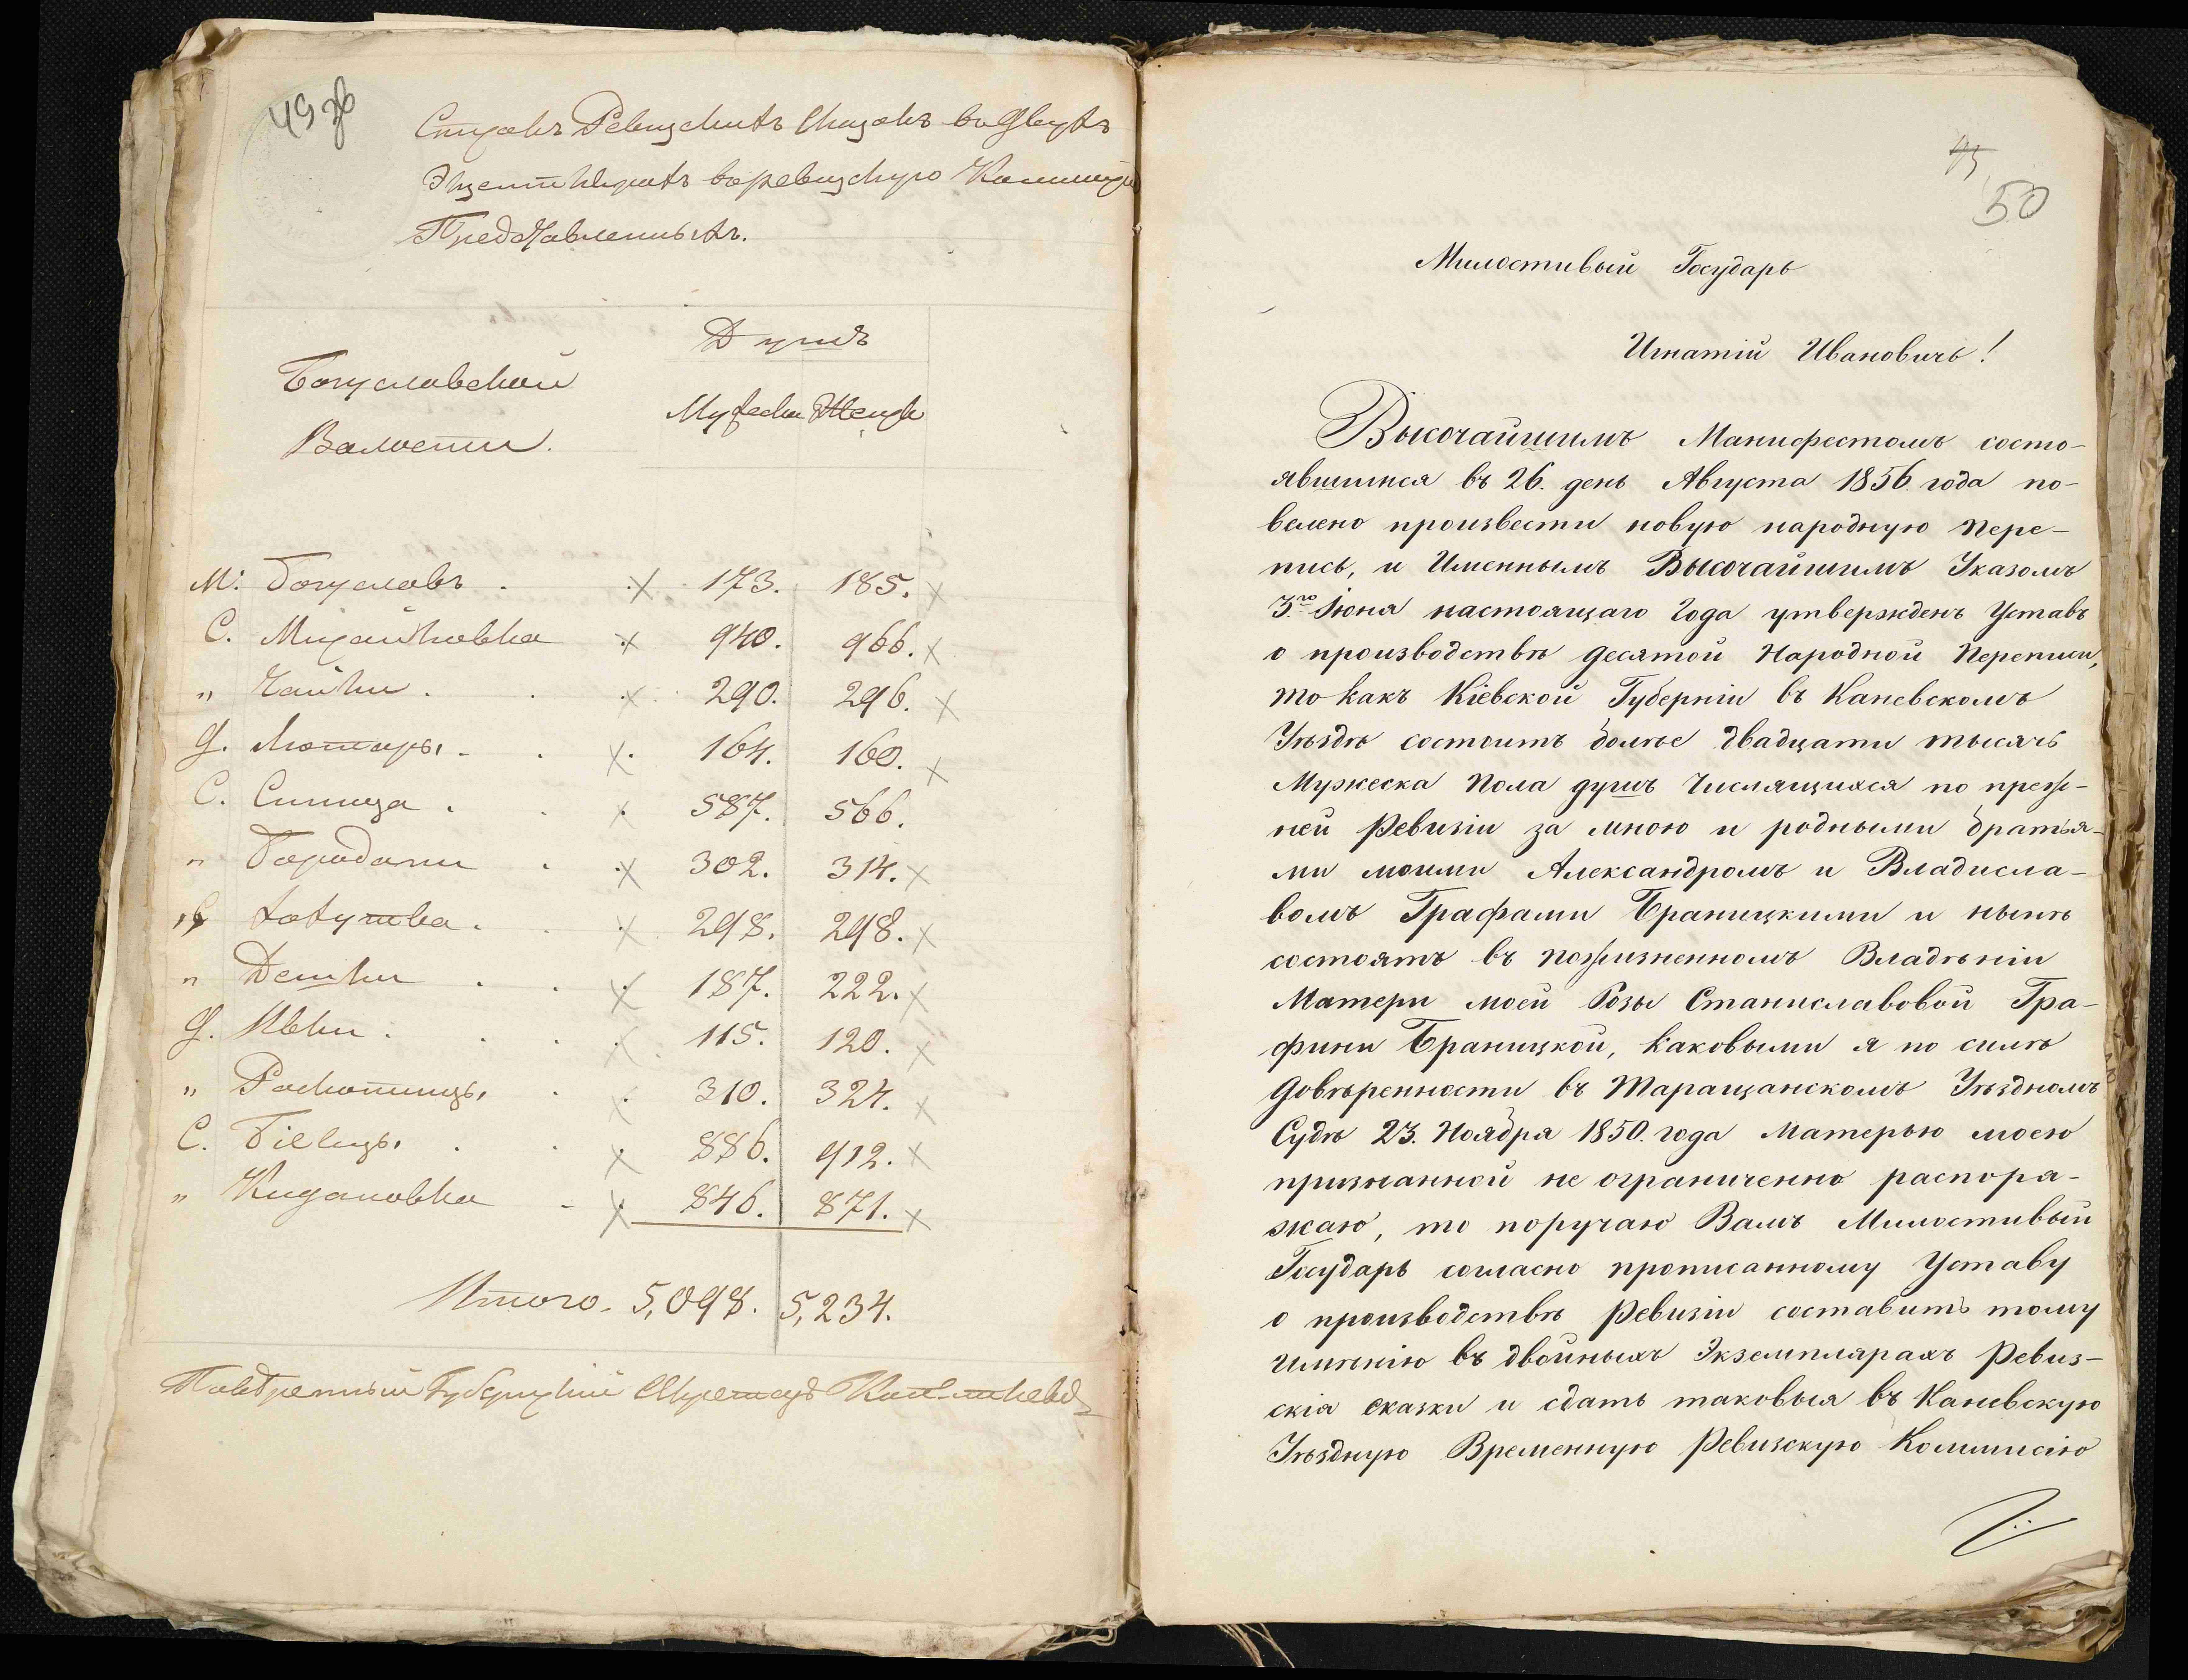 49 зв
Списокъ Ревизскихъ Сказокъ въ двухъ
Экземплярахъ въ ревизскую Коммисiю
Представленныхъ.
Богуславской
Волости.
Душъ
Мужеска Женск
М. Богуславъ . . 173. 185.
С. Михайловка . 940. 966.
„ Чайки . . . 290. 296.
д. Лютары . . . 164. 160.
С. Синица . . . 587. 566.
„ Бородани . . 302. 314.
„ Хохутва . . . 298. 298.
„ Дешки . . . 187. 222.
д. Ивки . . . . 115. 120.
„ Раскопинцы . . 310. 324.
С. Бiевцы . . . 886. 912.
„ Кидановка . . 846. 871.
Итого. 5,098. 5,234.
Повѣренный Губернскiй Секретарь
45
50
Милостивый Государь
Игнатiй Ивановичъ!
Высочайшимъ Манифестомъ состо-
явшимся въ 26. день Августа 1856. года по-
велено произвести новую народную пере-
пись, и Именнымъ Высочайшимъ Указомъ
3.го Iюня настоящаго года утвержденъ Уставъ
о производствѣ десятой Народной Переписи,
то какъ Кiевской Губернiи въ Каневскомъ
Уѣздѣ состоитъ болѣе двадцати тысячъ
Мужеска пола душъ числящихся по преж-
ней Ревизiи за мною и родными братья-
ми моими Александромъ и Владисла-
вомъ Графами Браницкими и нынѣ
состоятъ въ пожизненномъ Владѣнiи
Матери моей Розы Станиславовой Гра-
фини Браницкой, каковыми я по силѣ
довѣренности въ Таращанскомъ Уѣздномъ
Судѣ 23. Ноября 1850. года Матерью моею
признанной не ограниченно распоря-
жаю, то поручаю Вамъ Милостивый
Государь согласно прописанному Уставу
о производствѣ Ревизiи составить тому
имѣнiю въ двойныхъ Экземплярахъ Ревиз-
скiя сказки и сдать таковыя въ Каневскую
Уѣздную Временную Ревизскую Коммисiю